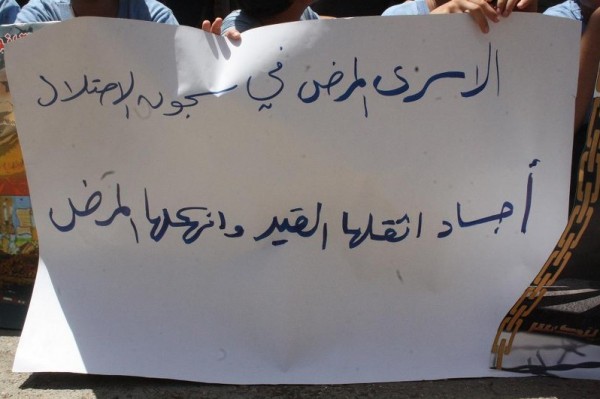 الاسرى المرضى في سجون الاحتلال
أجساد اثقلها القيد وانهكها المرض